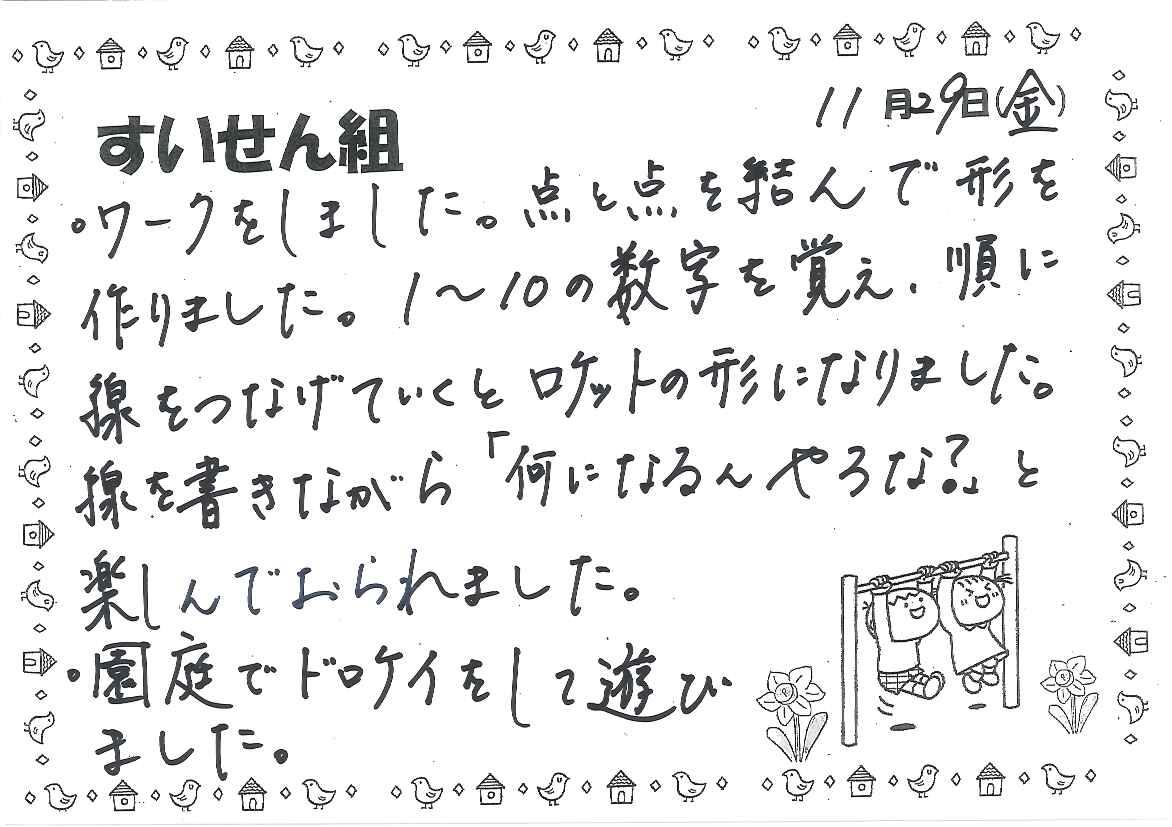 11月29日(金)
すいせん組
。ワークをしました。点と点を結んで形を
作りました。1〜10の数字を覚え、順に
線をつなげていくとロケットの形になりました。
線を書きながら「何になるんやろな?」と
楽しんでおられました。
。園庭でドロケイをして遊び
ました。